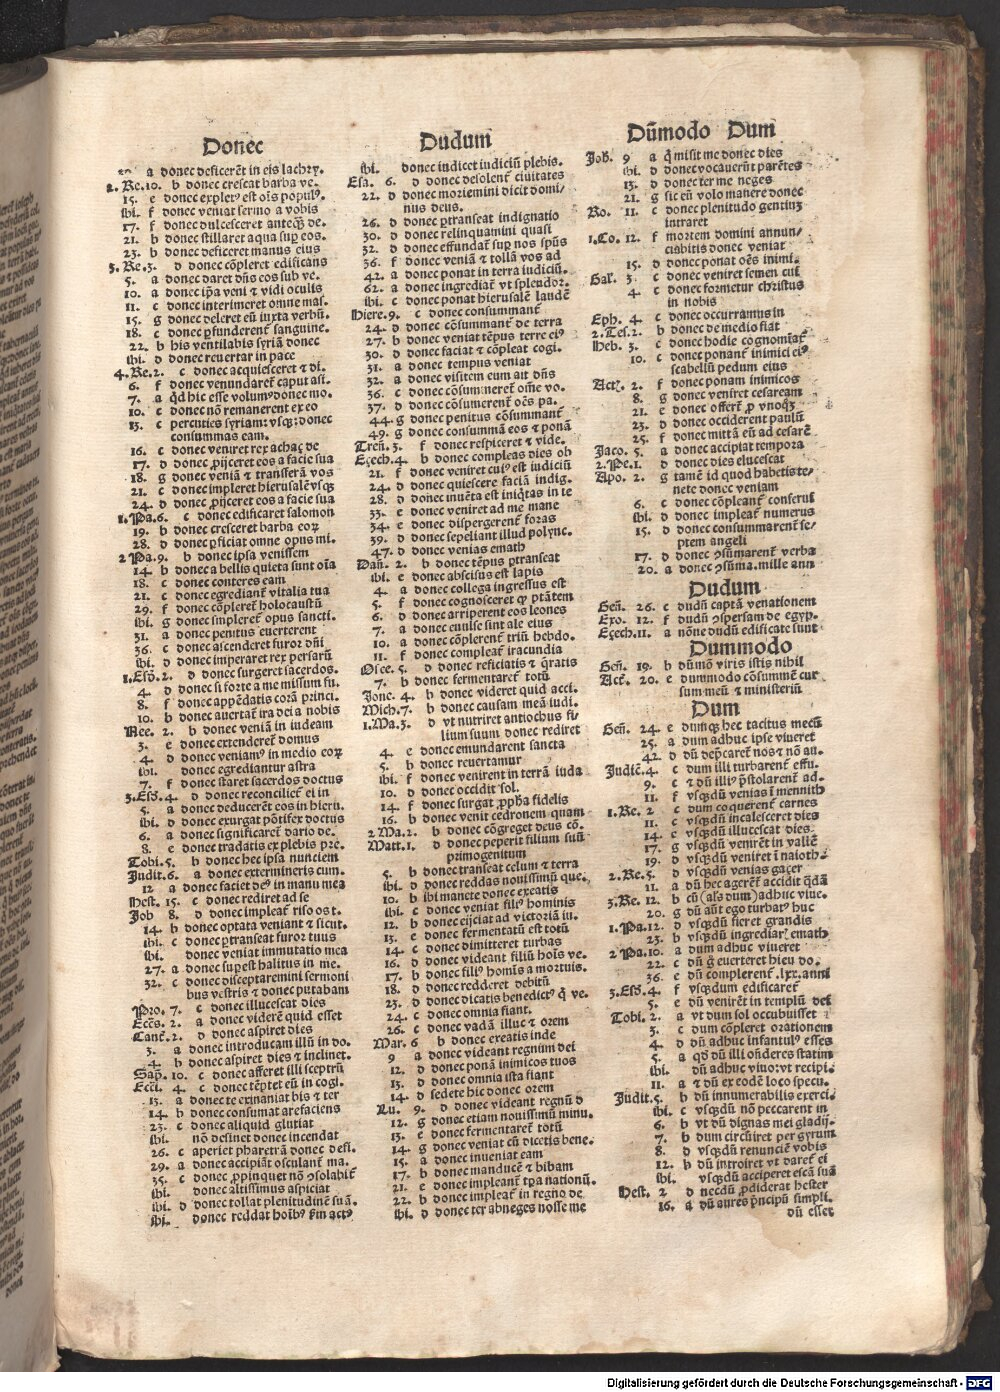 Donec
a donec deficerēt in eis lachrȳ.
2. Re. 10. b donec crescat barba ve.
15. e donec explet᷒ est oīs popul᷒.
ibi. f donec veniat sermo a vobis
17. f donec dulcesceret anteq̄ȝ de.
21. b donec stillaret aqua sup eos.
23. b donec deficeret manus eius
3. Re. 3. d donec cōpleret edificans
5. a donec daret dn̄s eos sub ve.
10. a donec ip̄a veni ⁊ vidi oculis
11. c donec interimeret omne mas.
15. g donec deleret eū iuxta verbū.
18. c donec ꝑfunderent᷑ sanguine.
22. b his ventilabis syriā donec
ibi. d donec reuertar in pace
4. Re. 2. c donec acquiesceret ⁊ di.
6. f donec venundaret᷑ caput asi.
7. a qd̄ hic esse volum᷒ donec mo.
10. c donec nō remanerent ex eo
13. c percuties syriam: vsqȝ: donec
consummas eam.
16. c donec veniret rex achaȝ de
17. d donec ꝓijceret eos a facie sua
18. g donec veniā ⁊ transferā vos
21. c donec impleret hierusalē vsqȝ
24. d donec ꝓijceret eos a facie sua
1. Pa. 6. c donec edificaret salomon
19. b donec cresceret barba eoꝝ
28. d donec ꝑficiat omne opus mi.
2 Pa. 9. b donec ipsa venissem
14. b donec a bellis quieta sunt oīa
18. c donec conteres eam
21. c donec egrediant᷑ vitalia tua
29. f donec cōpleret᷑ holocaustū
ibi. g donec īmpleret᷑ opus sancti.
31. a donec penitus euerterent
36. c donec ascenderet furor dn̄i
ibi. d donec imperaret rex persarū
1. Esd̄. 2. d donec surgeret sacerdos.
4. d donec si forte a me missum fu.
8. f donec appēdatis corā princi.
10. b donec auertat᷑ ira dei a nobis
Nee. 2. b donec veniā in iudeam
3. e donec extenderet᷑ domus
4. d donec veniam᷒ in medio eoꝝ
ibi. donec egrediantur astra
7. f donec staret sacerdos doctus
3. Esd̄. 4. d donec reconciliet᷑ ei in
5. a donec deducerēt eos in hieru.
ibi. d donec exurgat pōtifex doctus
6. a donec significaret᷑ dario de.
8. e donec tradatis ex plebis pre.
Tobi. 5. b donec hec ipsa nunciem
Judit. 6. a donec extermineris cum.
12 a donec faciet de᷒ in manu mea
Hest. 15. c donec rediret ad se
Job 8. d donec impleat᷑ risoost.
14. b donec optata veniant ⁊ sicut.
ibi. c donec ꝑtranseat furor tuus
ibi. donec veniat immutatio mea
27. a donec supest halitus in me.
32. c donec disceptaremini sermoni
bus vestris ⁊ donec putabam
Pro. 7. c donec illucescat dies
Eccs̄. 2. a donec viderē quid esset
Cant̄. 2. d donec aspiret dies
3. a donec introducam illū in do.
4. b donec aspiret dies ⁊ inclinet᷑.
Sap̄. 10. c donec afferet illi sceptrū
Ecci. 4. c donec tēptet eū in cogi.
13. a donec te exinaniat bis ⁊ ter
14. b donec consumat arefaciens
23. c donec aliquid glutiat
ibi. nō desinet donec incendat
26. c aperiet pharetrā donec defi.
29. a donec accipiāt osculant᷑ ma.
35. c donec ꝓpinquet nō ꝯsolabit᷑
ibi. donec altissimus aspiciat
ibi. d donec tollat plenitudinē suā.
ibi. donec reddat hoīb᷒ ẜm act᷒

Dudum
ibi. donec indicet iudiciū plebis.
Esa. 6. d donec desolent᷑ ciuitates
22. d donec moriemini dicit domi-
nus deus.
26. d donec ꝑtranseat indignatio
30. d donec relinquamini quasi
32. d donec effundat᷑ sup nos spūs
36. f donec veniā ⁊ tollā vos ad
42. a donec ponat in terra iudiciū.
62. a donec ingrediat᷑ vt splendor.
ibi. c donec ponat hierusalē laudē
Hiere. 9. c donec consummant᷑
24. d donec cōsummant᷑ de terra
27. b donec veniat tēpus terre ei᷒
30. d donec faciat ⁊ cōpleat cogi.
31. a donec tempus veniat
32. a donec visitem eum ait dn̄s
36. c donec cōsumeret᷑ om̄e vo.
37. d donec cōsumerent᷑ oēs pa.
44. g donec penitus cōsummant᷑
49. g donec consummā eos ⁊ ponā
Tren̄. 3. f donec respiceret ⁊ vide.
Eȝech. 4. b donec compleas dies ob
21. f donec veniret cui᷒ est iudiciū
24. d donec quiescere faciā indig.
28. d donec inuēta est iniq̄tas in te
33. e donec veniret ad me mane
34. e donec dispergerent᷑ foras
39. d donec sepeliant illud polync.
47. d donec venias emath
Dan̄. 2. b donec tēpus ꝑtranseat
ibi. e donec abscisus est lapis
4. a donec collega ingressus est
5. f donec cognosceret ꝙ ptātem
6. d donec arriperent eos leones
7. a donec euulse sunt ale eius
10. a donec cōplerent᷑ triū hebdo.
11. f donec compleat᷑ iracundia
Osee. 5. d donec reficiatis ⁊ q̄ratis
7. b donec fermentaret᷑ totū
Jone. 4. b donec videret quid acci.
Mich. 7. b donec causam meā iudi.
1. Ma. 3. d vt nutriret antiochus fi-
lium suum donec rediret
4. e donec emundarent sancta
5. b donec reuertamur
ibi. f donec venirent in terrā iuda
10. d donec occidit sol.
14. f donec surgat ꝓpha fidelis
16. b donec venit cedronem quam
2 Ma. 2. b donec cōgreget deus cō.
Matt. 1. d donec peperit filium suū
primogenitum
5. b donec transeat celum ⁊ terra
ibi. d donec reddas nouissimū que.
10. b ibi manete donec exeatis
ibi. c donec veniat fili᷒ hominis
12. b donec eijciat ad victoriā iu.
13. e donec fermentatū est totū
14. c donec dimitteret turbas
16. d donec videant filiū hoīs ve.
17. b donec fili᷒ homīs a mortuis.
18. d donec redderet debitū
23. d donec dicatis benedict᷒ q̄ ve.
24. c donec omnia fiant.
26. c donec vadā illuc ⁊ orem
Mar. 6 b donec exeatis inde
9 a donec videant regnum dei
12. d donec ponā inimicos tuos
13. d donec omnia ista fiant
14. d sedete hic donec orem
Lu. 9. d donec videant regnū d
12. g donec etiam nouissimū minu.
13. e donec fermentaret᷑ totū
14. g donec veniat cū dicetis bene.
15. a donec inueniat eam
17. b donec manducē ⁊ bibam
21. e donec impleant᷑ tp̄a nationū.
22. b donec impleat᷑ in regno de
ibi. d donec ter abneges nosse me

Dūmodo Dum
Joh̄. 9 a q̄ misit me donec dies
ibi. d donec vocauerūt parētes
13. d donec ter me neges
21. g sic eū volo manere donec
Ro. 11. c donec plenitudo gentiuȝ
intraret
1. Co. 12. f mortem domini annun-
ciabitis donec veniat
15. d donec ponat oēs inimi.
Gal̄. 3 c donec veniret semen cui
4. c donec formetur christus
in nobis
Eph. 4. c donec occurramus in
2. Tes. 2. b donec de medio fiat
Heb. 3. c donec hodie cognomīat᷑
10. c donec ponant᷑ inimici ei᷒
scabellū pedum eius
Act̄. 2. f donec ponam inimicos
8. g donec veniret cesaream
21. e donec offerret᷑ ꝓ vnoq̄ȝ
23. d donec occiderent paulū
25. f donec mittā eū ad cesarē
Jaco. 5. a donec accipiat tempora
2. Pe. 1. d donec dies elucescat
Apo. 2. g tamē id quod habetis te-
nete donec veniam
6. c donec cōpleant᷑ conserui
ibi. d donec impleat᷑ numerus
15. d donec consummarent᷑ se-
ptem angeli
17. d donec ꝯsūmarent᷑ verba
20. a donec ꝯsūma. mille ann
Dudum
Gen̄. 26. c dudū captā venationem
Exo. 12. f dudū ꝯspersam de egyp.
Eȝech. 11. a nōne dudū edificate sunt
Dummodo
Gen̄. 19. b dūmō viris istis nihil
Act̄. 20. e dummodo cōsummē cur
sum meū ⁊ ministeriū
Dum
Gen̄. 24. e dumqȝ hec tacitus mecū
25. a dum adhuc ipse viueret
42. d dū dep̄caret᷑ nos ⁊ nō au.
Judic̄. 4. c dum illi turbarent᷑ effu.
9. c ⁊ dū illi᷒ p̄stolarent᷑ ad.
11. f vsqȝdū venias ī mennith
1. Re. 2 c dum coquerent᷑ carnes
11. c vsqȝdū incalesceret dies
14. e vsqȝdū illucescat dies
17. g vsqȝdū venirēt in vallē
19. d vsqȝdū veniret ī naioth
2. Re. 5. d vsqȝdū venias gaȝer
11. a dū hec agerēt᷑ accidit qd̄ā
3. Re. 12. b cū (als̄ dum) adhuc viue.
20. g dū aūt ego turbat᷒ huc
1. Pa. 12. d vsqȝdū fieret grandis
23. b vsqȝdū ingrediar᷑ emath
2 Pa. 10. a dum adhuc viueret
22. c dū ḡ euerteret hieu do.
36. e dū complerent᷑ .lxx. anni
3. Esd̄. 4. f vsqȝdum edificaret᷑
5. e dū venirēt in templū dei
Tobi. 2. a vt dum sol occubuisset
3. c dum cōpleret orationem
4. d dū adhuc infantul᷒ esses
5. a qd̄ dū illi on̄deres statim
ibi. dū adhuc viuo: vt recipi.
11. a ⁊ dū ex eodē loco specu.
Judit. 5. b dū innumerabilis exerci.
ibi. c vsqȝdū nō peccarent in
6. b vt dū dignas mei gladij.
7. b dum circūiret per gyrum
8. d vsqȝdū renunciē vobis
12. b dū introiret vt daret᷑ ei
ibi. vsqȝdū acciperet escā suā
Hest. 2 d necdū ꝓdiderat hester
16. a dū aures p̄ncipū simpli.
dū esset

Digitalisierung gefördert durch die Deutsche Forschungsgemeinschaft - DFG